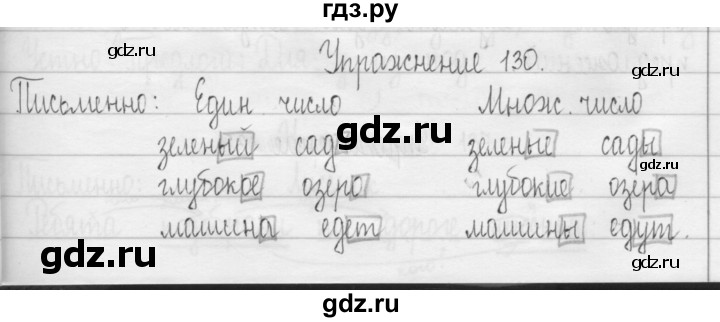 гдз.ру
Упражнение 130.
Письменно: Един число Множ. число
зеленый сад зеленые сады
глубокое озеро глубокие озера
машина едет машины едут.
gdz.ru
gdz.ru
gdz.ru
gdz.ru
gdz.ru
gdz.ru
gdz.ru
gdz.ru
gdz.ru